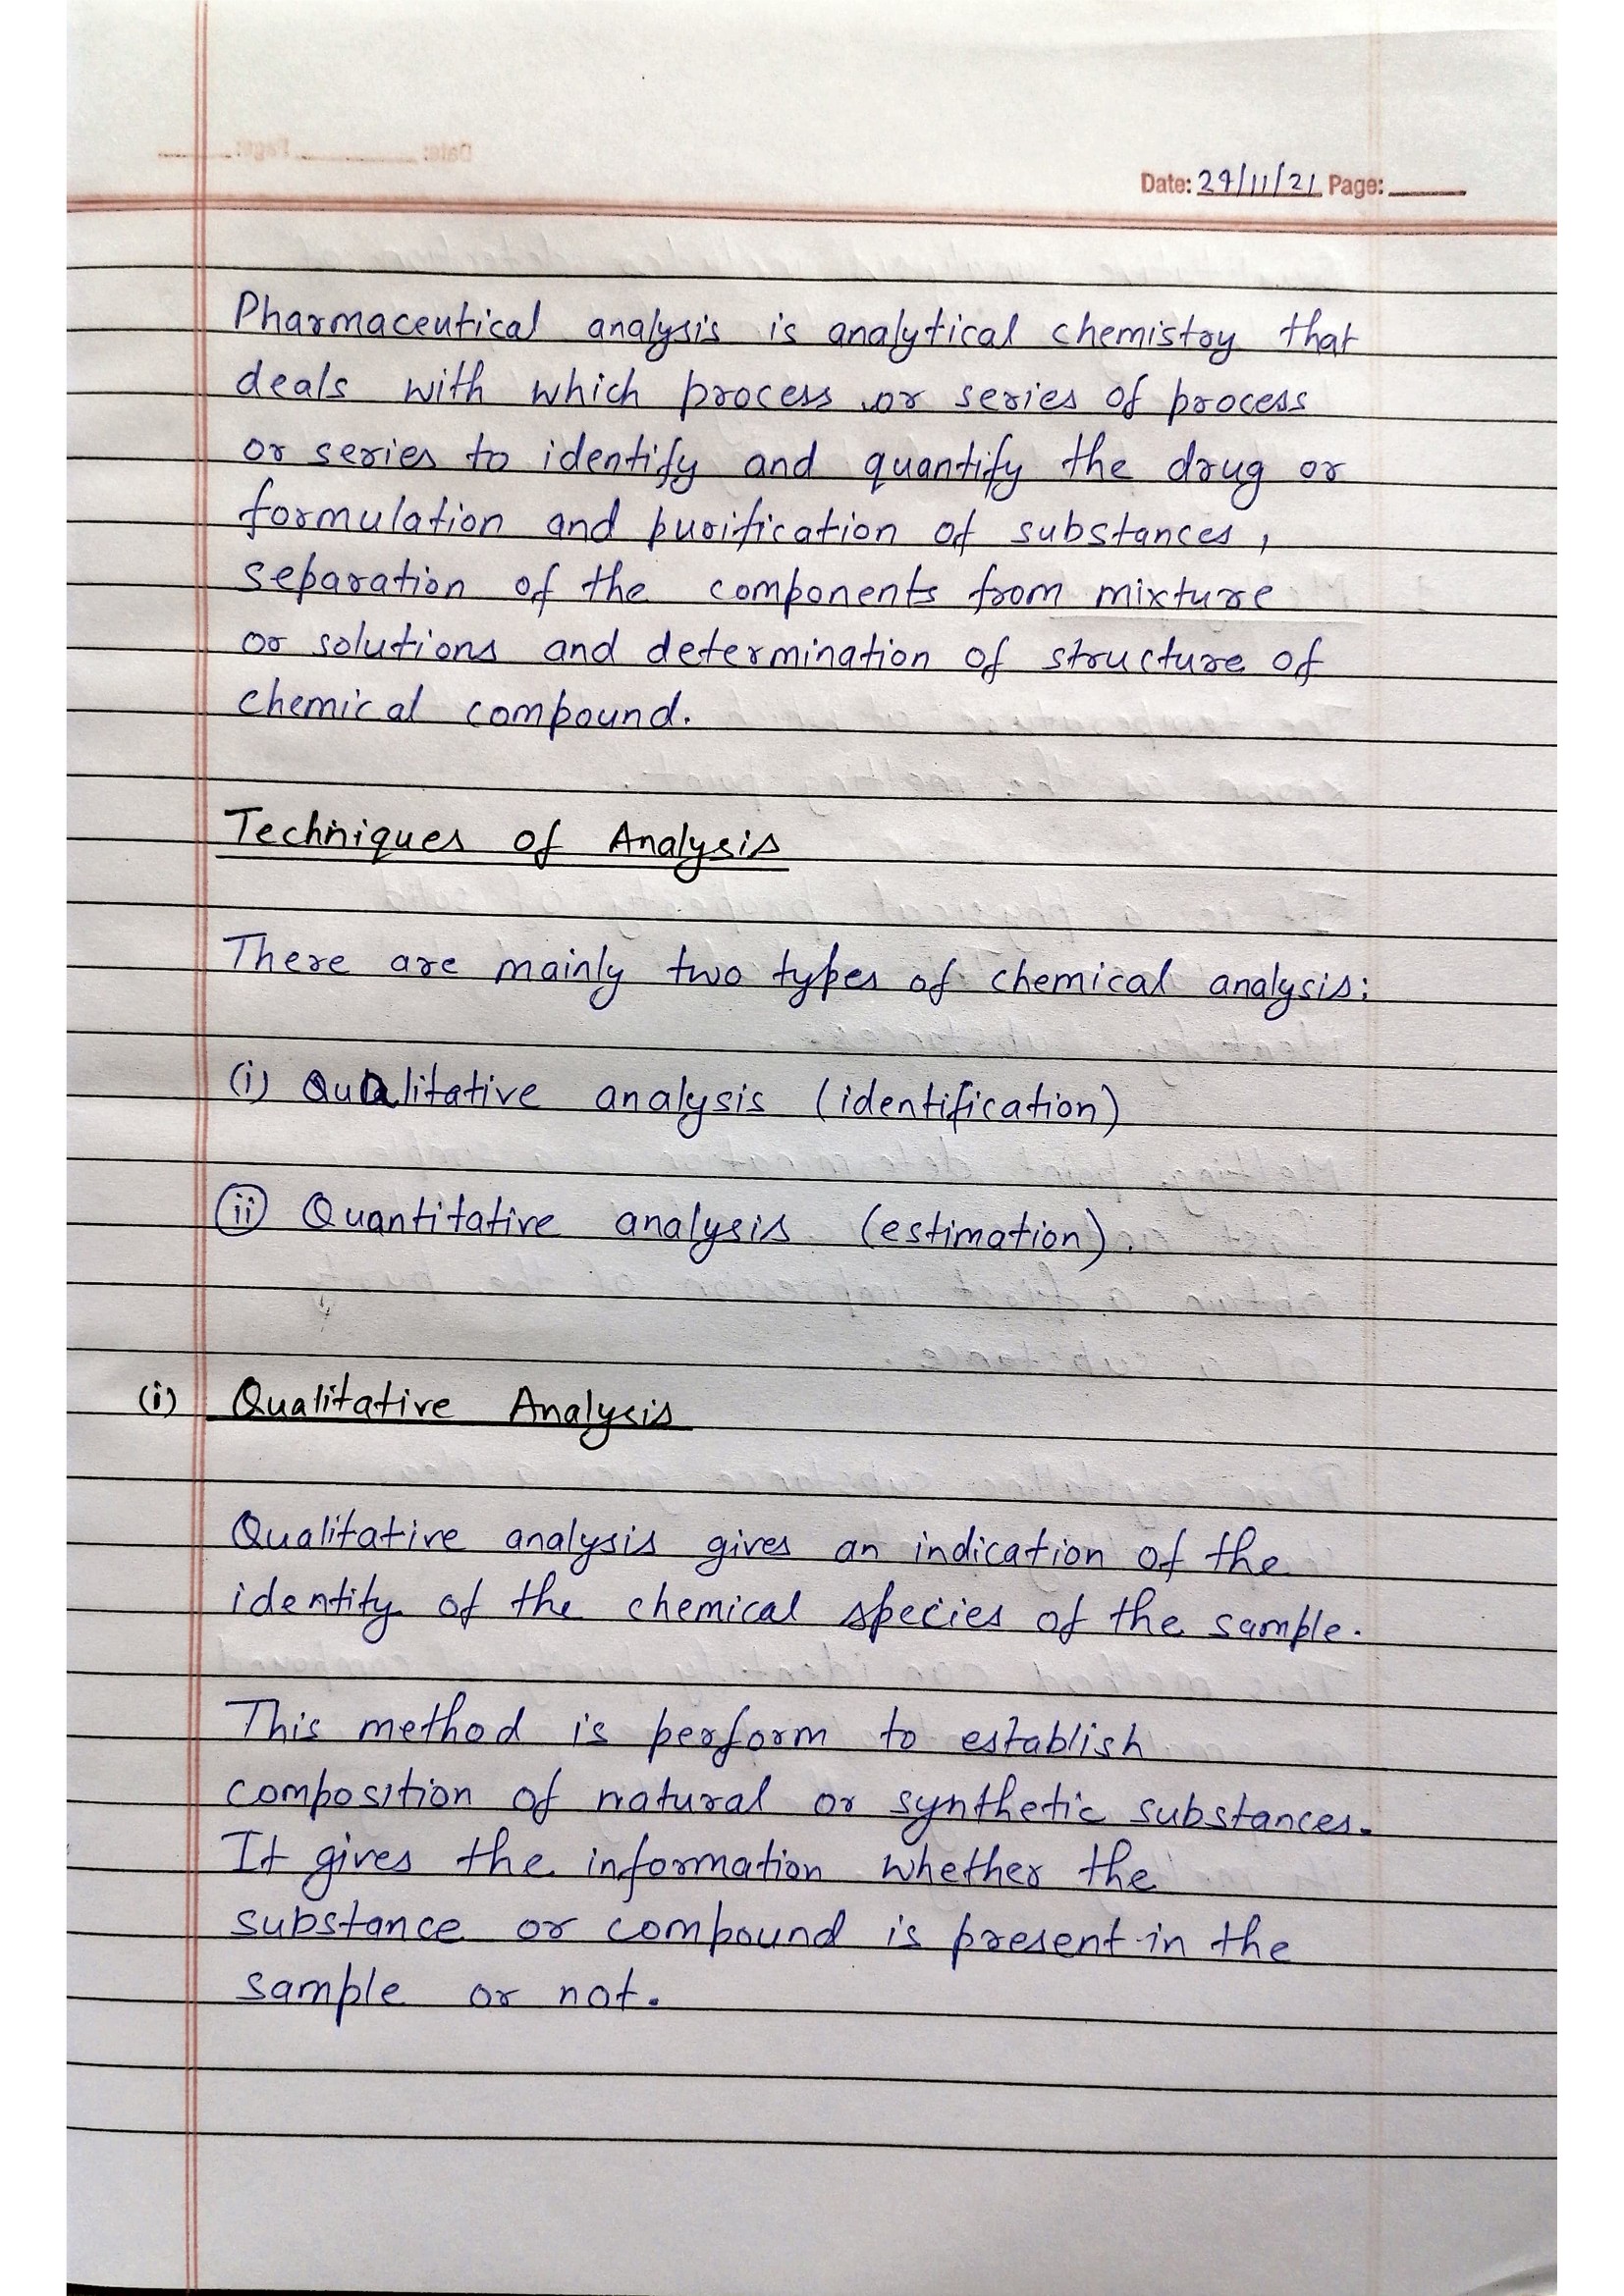 Date: 29/11/21 Page:
Pharmaceutical analysis is analytical chemistry that
deals with which process or series of process
or series to identify and quantify the drug or
formulation and purification of substances,
separation of the components from mixture
or solutions and determination of structure of
chemical compound.
Techniques of Analysis
There are mainly two types of chemical analysis:
(i) Qualitative analysis (identification)
(ii) Quantitative analysis (estimation).
(i) Qualitative Analysis
Qualitative analysis gives an indication of the
identity of the chemical species of the sample.
This method is perform to establish
composition of natural or synthetic substances.
It gives the information whether the
substance or compound is present in the
sample or not.